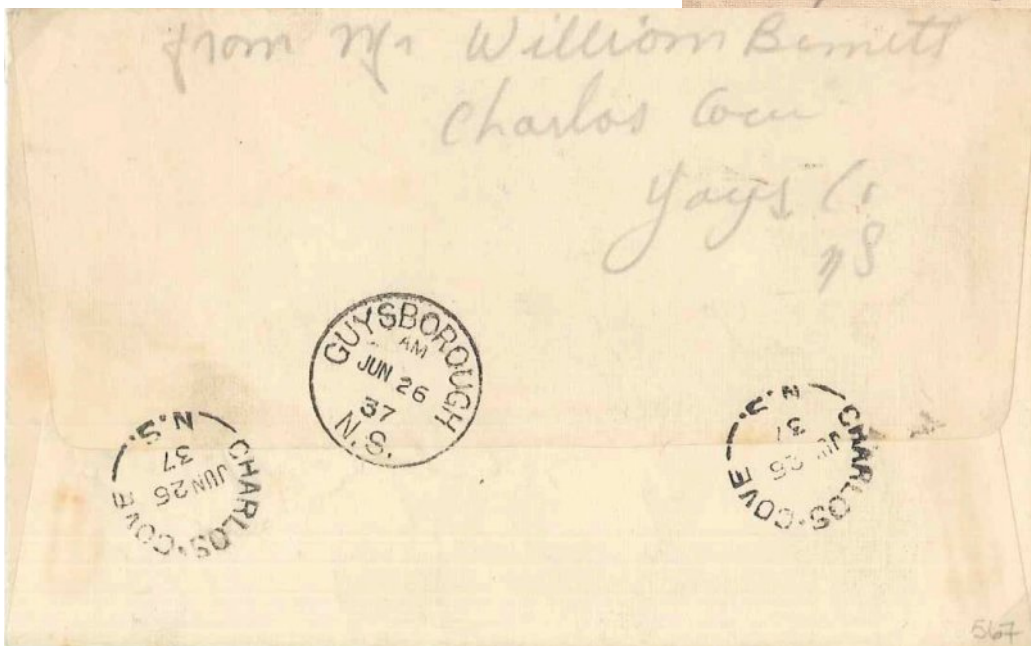 from Mr William Bennett
Charlos Cove
Guys Co
NS
GUYSBOROUGH
AM
JUN 26
37
N.S.
CHARLOS COVE
JUN 26
37
N.S.
CHARLOS COVE
JUN 26
37
N.S.
567